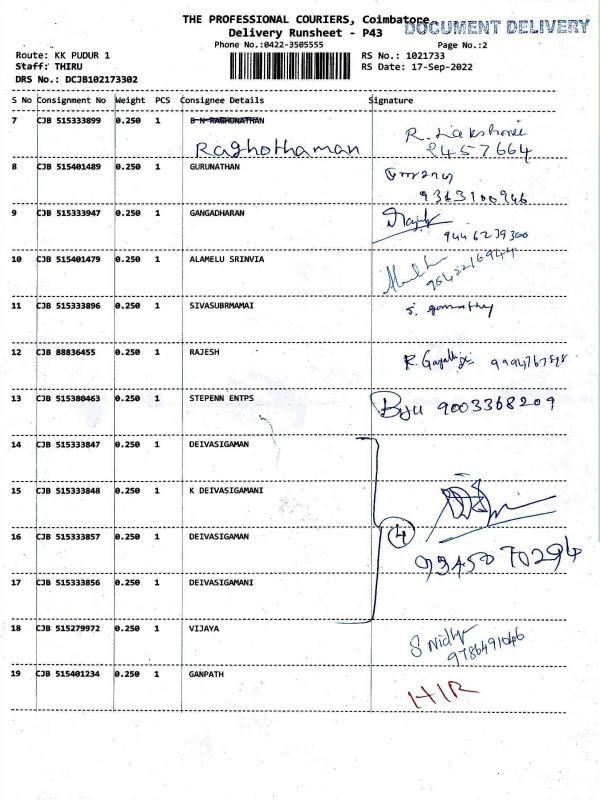 THE PROFESSIONAL COURIERS, Coimbatore
DOCUMENT DELIVERY
Delivery Runsheet - P43
Phone No.:0422-3505555
Page No.:2
Route: KK PUDUR 1
RS No.: 1021733
Staff: THIRU
RS Date: 17-Sep-2022
DRS No.: DCJB102173302
S No Consignment No Weight PCS Consignee Details Signature
7 CJB 515333899 0.250 1 B N RAGHUNATHAN
Raghothaman
R.
9457664
8 CJB 515401489 0.250 1 GURUNATHAN
9363100946
9 CJB 515333947 0.250 1 GANGADHARAN
9446239300
10 CJB 515401479 0.250 1 ALAMELU SRINVIA
11 CJB 515333896 0.250 1 SIVASUBRMAMAI
S. gomathy
12 CJB 88836455 0.250 1 RAJESH
R.
13 CJB 515380463 0.250 1 STEPENN ENTPS
Byu 9003368209
14 CJB 515333847 0.250 1 DEIVASIGAMAN
15 CJB 515333848 0.250 1 K DEIVASIGAMANI
16 CJB 515333857 0.250 1 DEIVASIGAMAN
4
9345070294
17 CJB 515333856 0.250 1 DEIVASIGAMANI
18 CJB 515279972 0.250 1 VIJAYA
S
9786491046
19 CJB 515401234 0.250 1 GANPATH
HIR